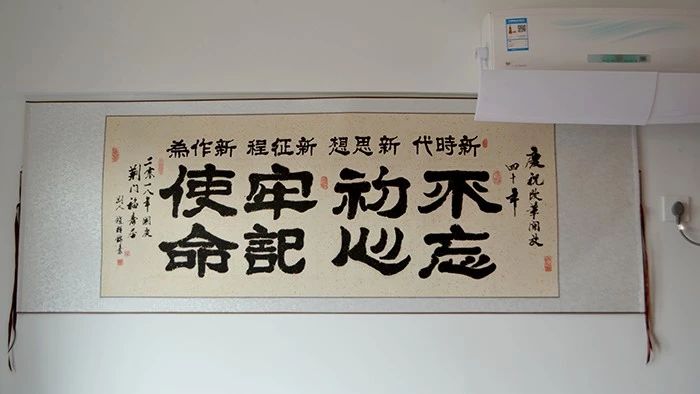 慶祝改革開放
四十年
新時代 新思想 新征程 新作為
不忘
初心
牢記
使命
二零一八年國慶
荆门